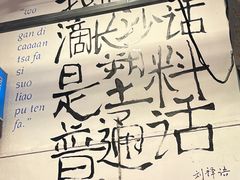 "wo
gan di
caaaan
tsa fa
si
suo
liao
pu ten
fa."
滴长沙话
是塑料
普通话